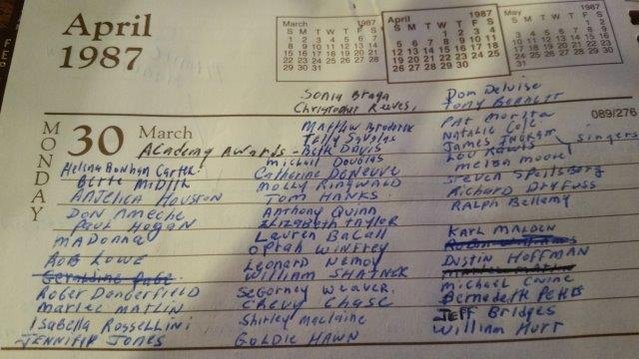 April
1987
March 1987
S M T W T F S
1 2 3 4 5 6 7
8 9 10 11 12 13 14
15 16 17 18 19 20 21
22 23 24 25 26 27 28
29 30 31
April 1987
S M T W T F S
1 2 3 4
5 6 7 8 9 10 11
12 13 14 15 16 17 18
19 20 21 22 23 24 25
26 27 28 29 30
May 1987
S M T W T F S
MONDAY
30 March
089/276
Academy Awards -
Helena Bonham Carter
Bette Midler
Anjelica Houston
Don Ameche
Paul Hogan
Madonna
Rob Lowe
Geraldine Page
Roger Dangerfield
Marlee Matlin
Isabella Rossellini
Jennifer Jones
Sonia Braga
Christopher Reeves,
Matthew Broderick
Telly Savalas
Bette Davis
Michael Douglas
Catherine Deneuve
Molly Ringwald
Tom Hanks
Anthony Quinn
Elizabeth Taylor
Lauren Bacall
Oprah Winfrey
Leonard Nemoy
William Shatner
Segorney Weaver.
Chevy Chase
Shirley Maclaine
Goldie Hawn
Dom Deluise
Tony Bennett
Pat Morita
Natalie Cole
James Ingram
Singers
Lou Rawls
Melba Moore
Steven Speilsburg
Richard Dryfuss
Ralph Bellamy
Karl Malden
Robin Williams
Dustin Hoffman
Michael Caine
Bernadette Peters
Jeff Bridges
William Hurt